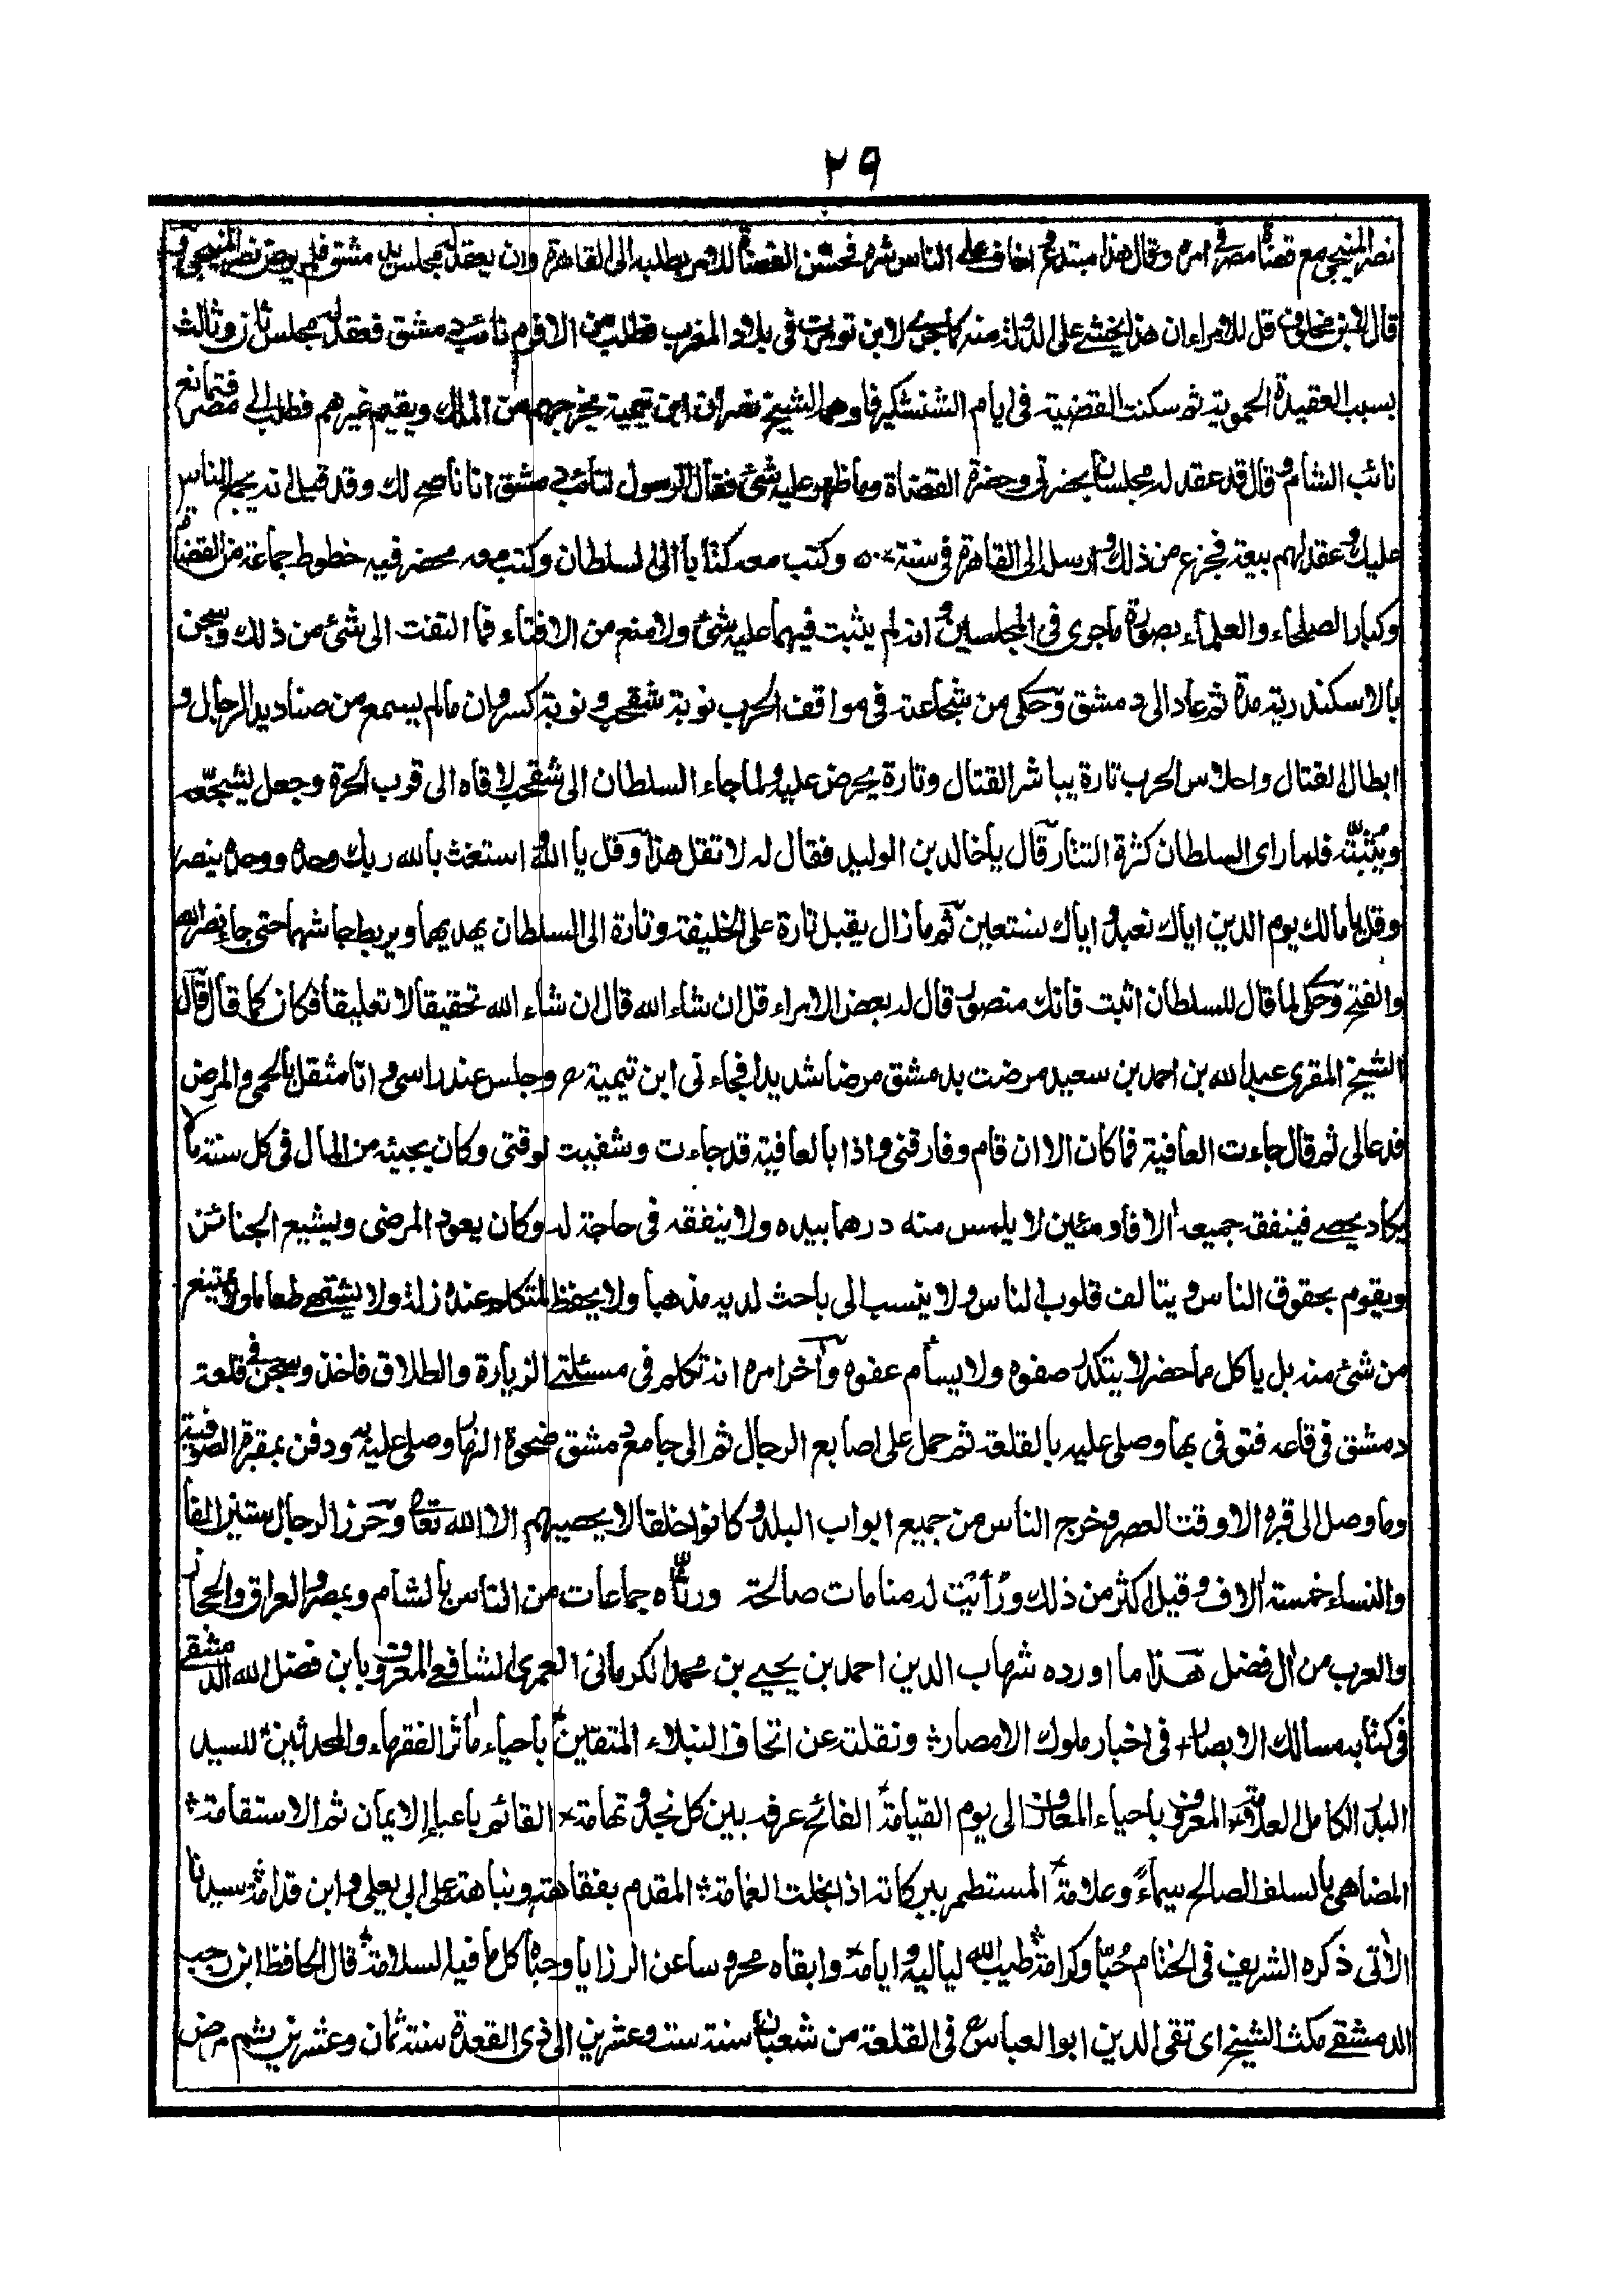 ٢٩
نصر المنبجي مع قضاة مصر في امره وقال هذا مبتدع اخاف على الناس شره فحسن القضاة للامير يطلبه الى القاهرة وان يعقد له مجلس بدمشق فلم يرض نصر المنبجي و
قال لابن مخلوف قل للامراء ان هذا يخشى على الدولة منه كما جرى لابن تومرت في بلاد المغرب فطلب من الافرم نائب دمشق فعقد له مجلس ثان وثالث
بسبب العقيدة الحموية ثم سكنت القضية في ايام الششنكير فاوهم الشيخ نصر ان ابن تيمية يخرجهم من الملك ويقيم غيرهم فطلب الى مصر فتمانع
نائب الشام وقال قد عقد له مجلسان بحضرتي وحضرة القضاة وما ظهر عليه شئ فقال الرسول لنائب دمشق انا ناصح لك وقد قيل انه يجمع الناس
عليك وعقد لهم بيعة فجزع من ذلك وارسل الى القاهرة في سنة وكتب معه كتابا الى السلطان وكتب معه محضر فيه خطوط جماعة من القضاة
وكبار الصلحاء والعلماء بصورة ما جرى في المجلسين وانه لم يثبت فيهما عليه شئ ولا منع من الافتاء فما التفت الى شئ من ذلك وسجن
بالاسكندرية مدة ثم عاد الى دمشق وحكى من شجاعته في مواقف الحرب نوبة شقحب ونوبة كسروان ما لم يسمع من صناديد الرجال و
ابطال القتال واحلاس الحرب تارة يباشر القتال وتارة يحرض عليه ولما جاء السلطان الى شقحب لاقاه الى قرب الحرة وجعل يشجعه
ويثبته فلما راى السلطان كثرة التتار قال يا خالد بن الوليد فقال له لا تقل هذا وقل يا الله استغث بالله ربك وحده ووحده ينصر
وقل يا مالك يوم الدين اياك نعبد واياك نستعين ثم ما زال يقبل تارة على الخليفة وتارة الى السلطان يهديهما ويربط جاشهما حتى جاء نصر الله
والفتح وحكى لما قال للسلطان اثبت فانك منصور قال له بعض الامراء قل ان شاء الله قال ان شاء الله تحقيقا لا تعليقا فكان كما قال قال
الشيخ المقرى عبد الله بن احمد بن سعيد مرضت بدمشق مرضا شديدا فجاءني ابن تيمية رح وجلس عند راسي وانا مثقل بالحمى والمرض
فدعا لي ثم قال جاءت العافية فما كان الا ان قام وفارقني واذا بالعافية قد جاءت وشفيت لوقتي وكان يجيئه من المال في كل سنة ما لا
يكاد يحصى فينفقه جميعه الافا ومئين لا يلمس منه درهما بيده ولا ينفقه في حاجة له وكان يعود المرضى ويشيع الجنائز
ويقوم بحقوق الناس ويتالف قلوب الناس ولا ينسب الى باحث لديه مذهبا ولا يحفظ لمتكلم عنده زلة ولا يشتهى طعاما ولا يمتنع
من شئ منه بل ياكل ما حضر لا يتكدر صفوه ولا يسأم عفوه وآخر امره انه تكلم في مسئلتي الزيارة والطلاق فاخذ وسجن في قلعة
دمشق في قاعه فتوفى بها وصلى عليه بالقلعة ثم حمل على اصابع الرجال ثم الى جامع دمشق ضحوة النهار وصلى عليه ودفن بمقبرة الصوفية
وما وصل الى قبره الا وقت العصر وخرج الناس من جميع ابواب البلد وكانوا خلقا لا يحصيهم الا الله تعالى وحزر الرجال ستين الفا
والنساء خمسة آلاف وقيل اكثر من ذلك ورأيت له منامات صالحة ورثاه جماعات من الناس بالشام ومصر والعراق والحجاز
والعرب من آل فضل هذا ما اورده شهاب الدين احمد بن يحيى بن محمد الكرماني العمري الشافعي المعروف بابن فضل الله الدمشقي
في كتابه مسالك الابصار في اخبار ملوك الامصار ونقلت عن اتحاف النبلاء المتقين باحياء مآثر الفقهاء والمحدثين للسيد
البدر الكامل العلامة المعروف باحياء المعارف الى يوم القيامة الفائح عرفه بين كل نجد وتهامة القائم باعباء الايمان ثم الاستقامة
المضاهي بالسلف الصالح سيماء وعلامة المستطمر ببركاته اذا بخلت الغمامة المقدم بفقاهته ونباهته على ابي يعلى وابن قدامة سيدنا
الآتي ذكره الشريف في الختام حُبّا وكرامة طيب الله لياليه وايامه وابقاه محروسا عن الرزايا وحباه كل ما فيه السلامة قال الحافظ ابن رجب
الدمشقي مكث الشيخ اى تقى الدين ابو العباس رح في القلعة من شعبان سنة ست وعشرين الى ذى القعدة سنة ثمان وعشرين ثم مرض